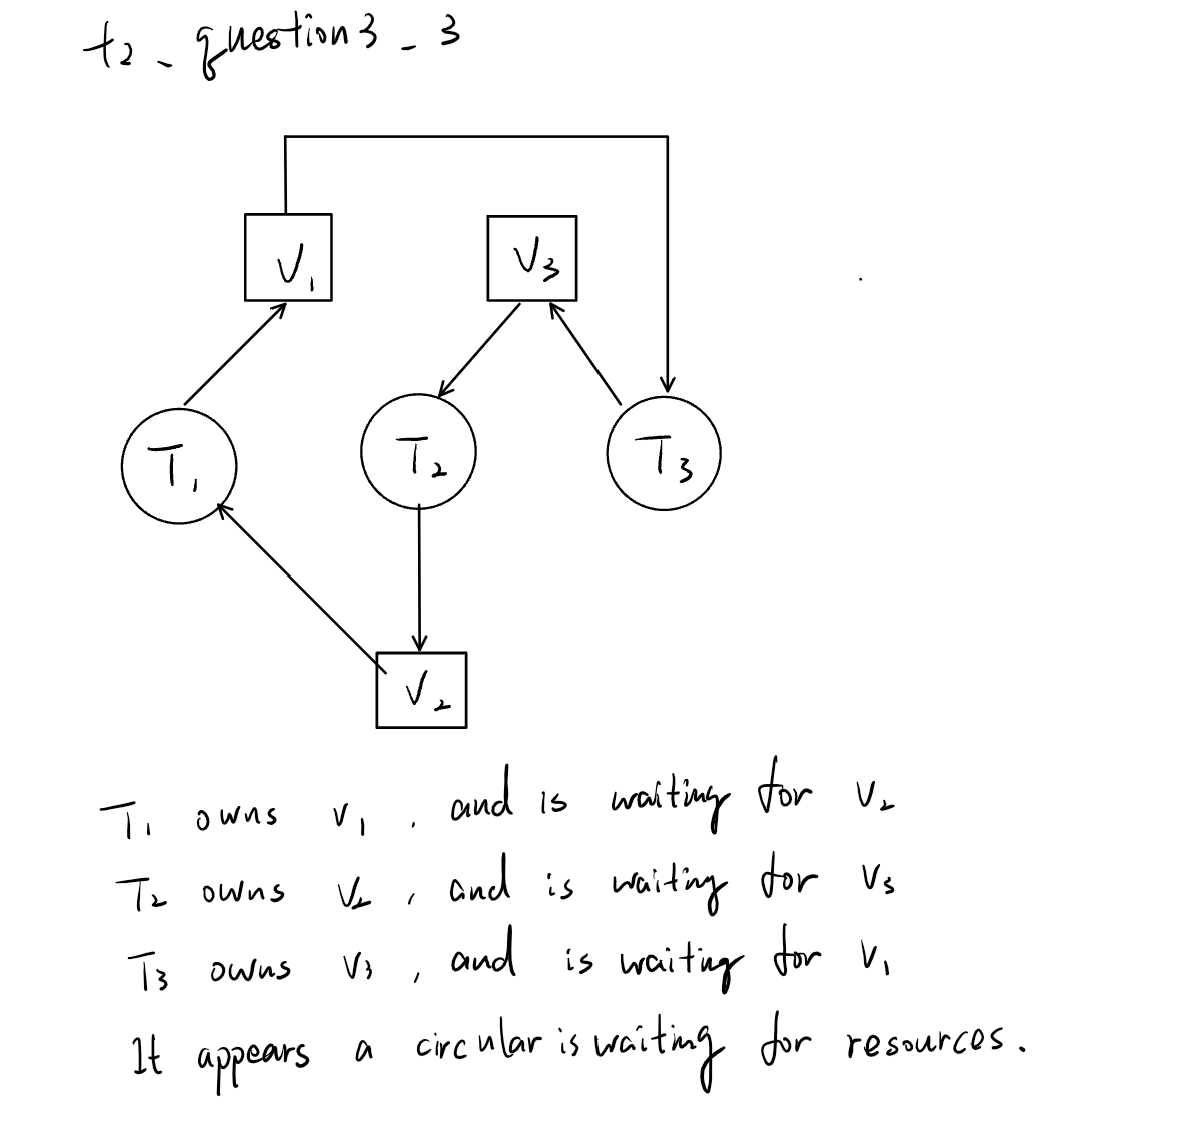 t2_question3_3
V1 V3
T1 T2 T3
V2
T1 owns V1, and is waiting for V2
T2 owns V2, and is waiting for V3
T3 owns V3, and is waiting for V1
It appears a circular is waiting for resources.